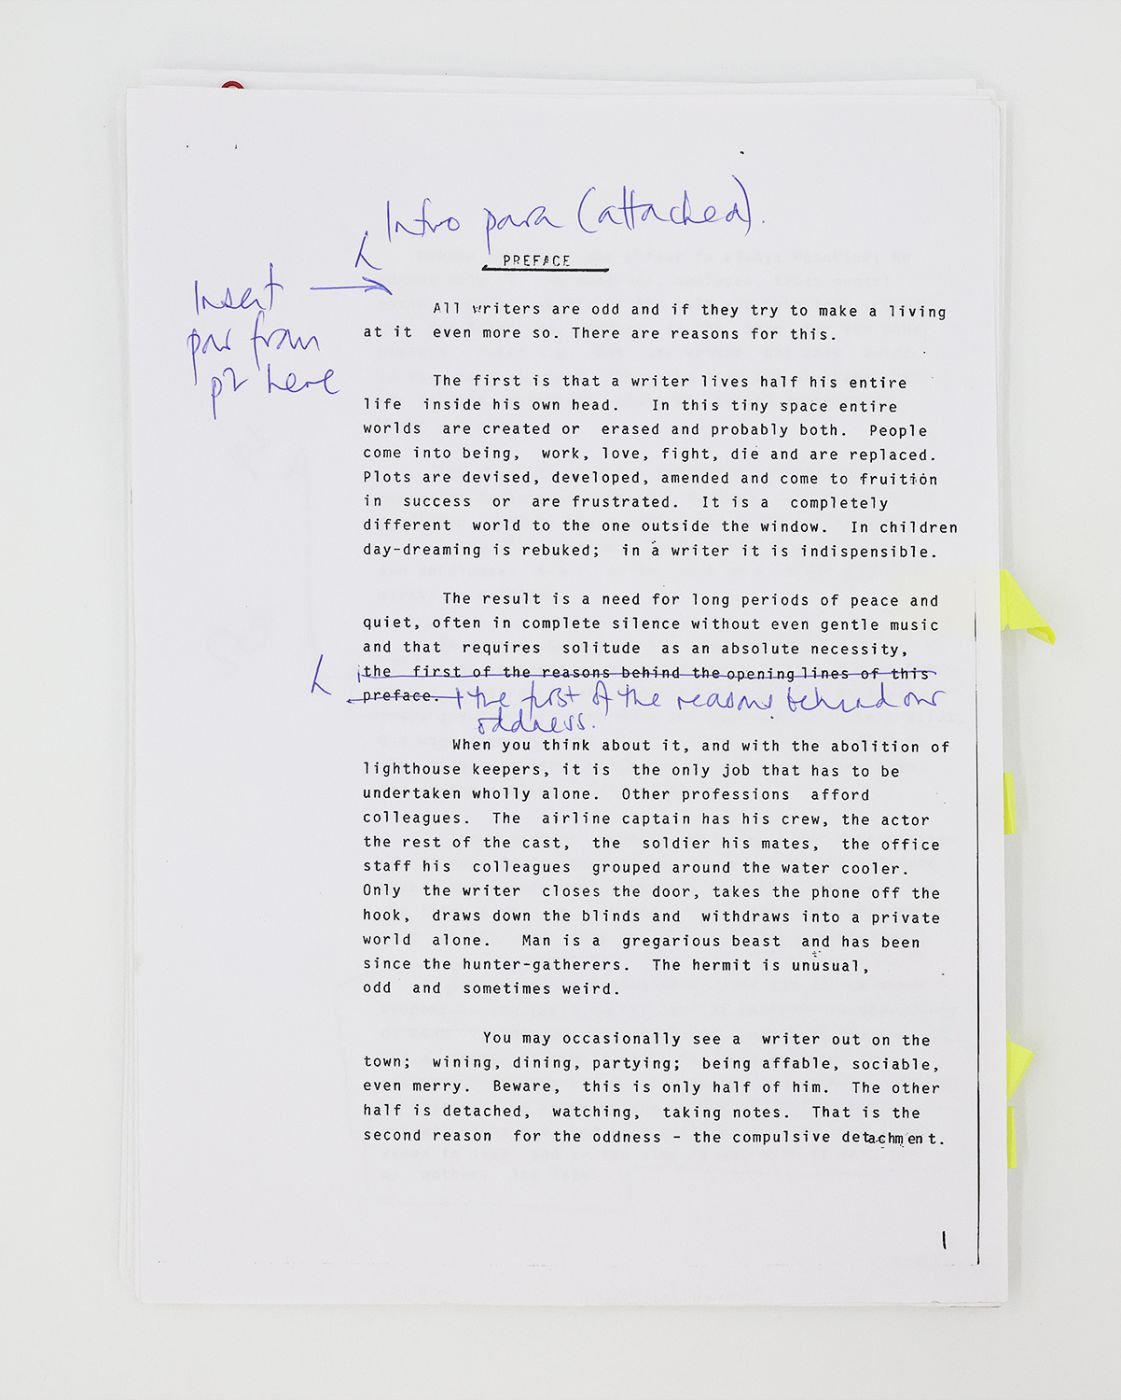 Intro para (attached).
PREFACE
Insert
par from
p2 here
All writers are odd and if they try to make a living
at it even more so. There are reasons for this.
The first is that a writer lives half his entire
life inside his own head. In this tiny space entire
worlds are created or erased and probably both. People
come into being, work, love, fight, die and are replaced.
Plots are devised, developed, amended and come to fruition
in success or are frustrated. It is a completely
different world to the one outside the window. In children
day-dreaming is rebuked; in a writer it is indispensible.
The result is a need for long periods of peace and
quiet, often in complete silence without even gentle music
and that requires solitude as an absolute necessity,
the first of the reasons behind the opening lines of this
preface. the first of the reasons behind our
oddness.
When you think about it, and with the abolition of
lighthouse keepers, it is the only job that has to be
undertaken wholly alone. Other professions afford
colleagues. The airline captain has his crew, the actor
the rest of the cast, the soldier his mates, the office
staff his colleagues grouped around the water cooler.
Only the writer closes the door, takes the phone off the
hook, draws down the blinds and withdraws into a private
world alone. Man is a gregarious beast and has been
since the hunter-gatherers. The hermit is unusual,
odd and sometimes weird.
You may occasionally see a writer out on the
town; wining, dining, partying; being affable, sociable,
even merry. Beware, this is only half of him. The other
half is detached, watching, taking notes. That is the
second reason for the oddness - the compulsive detachment.
1